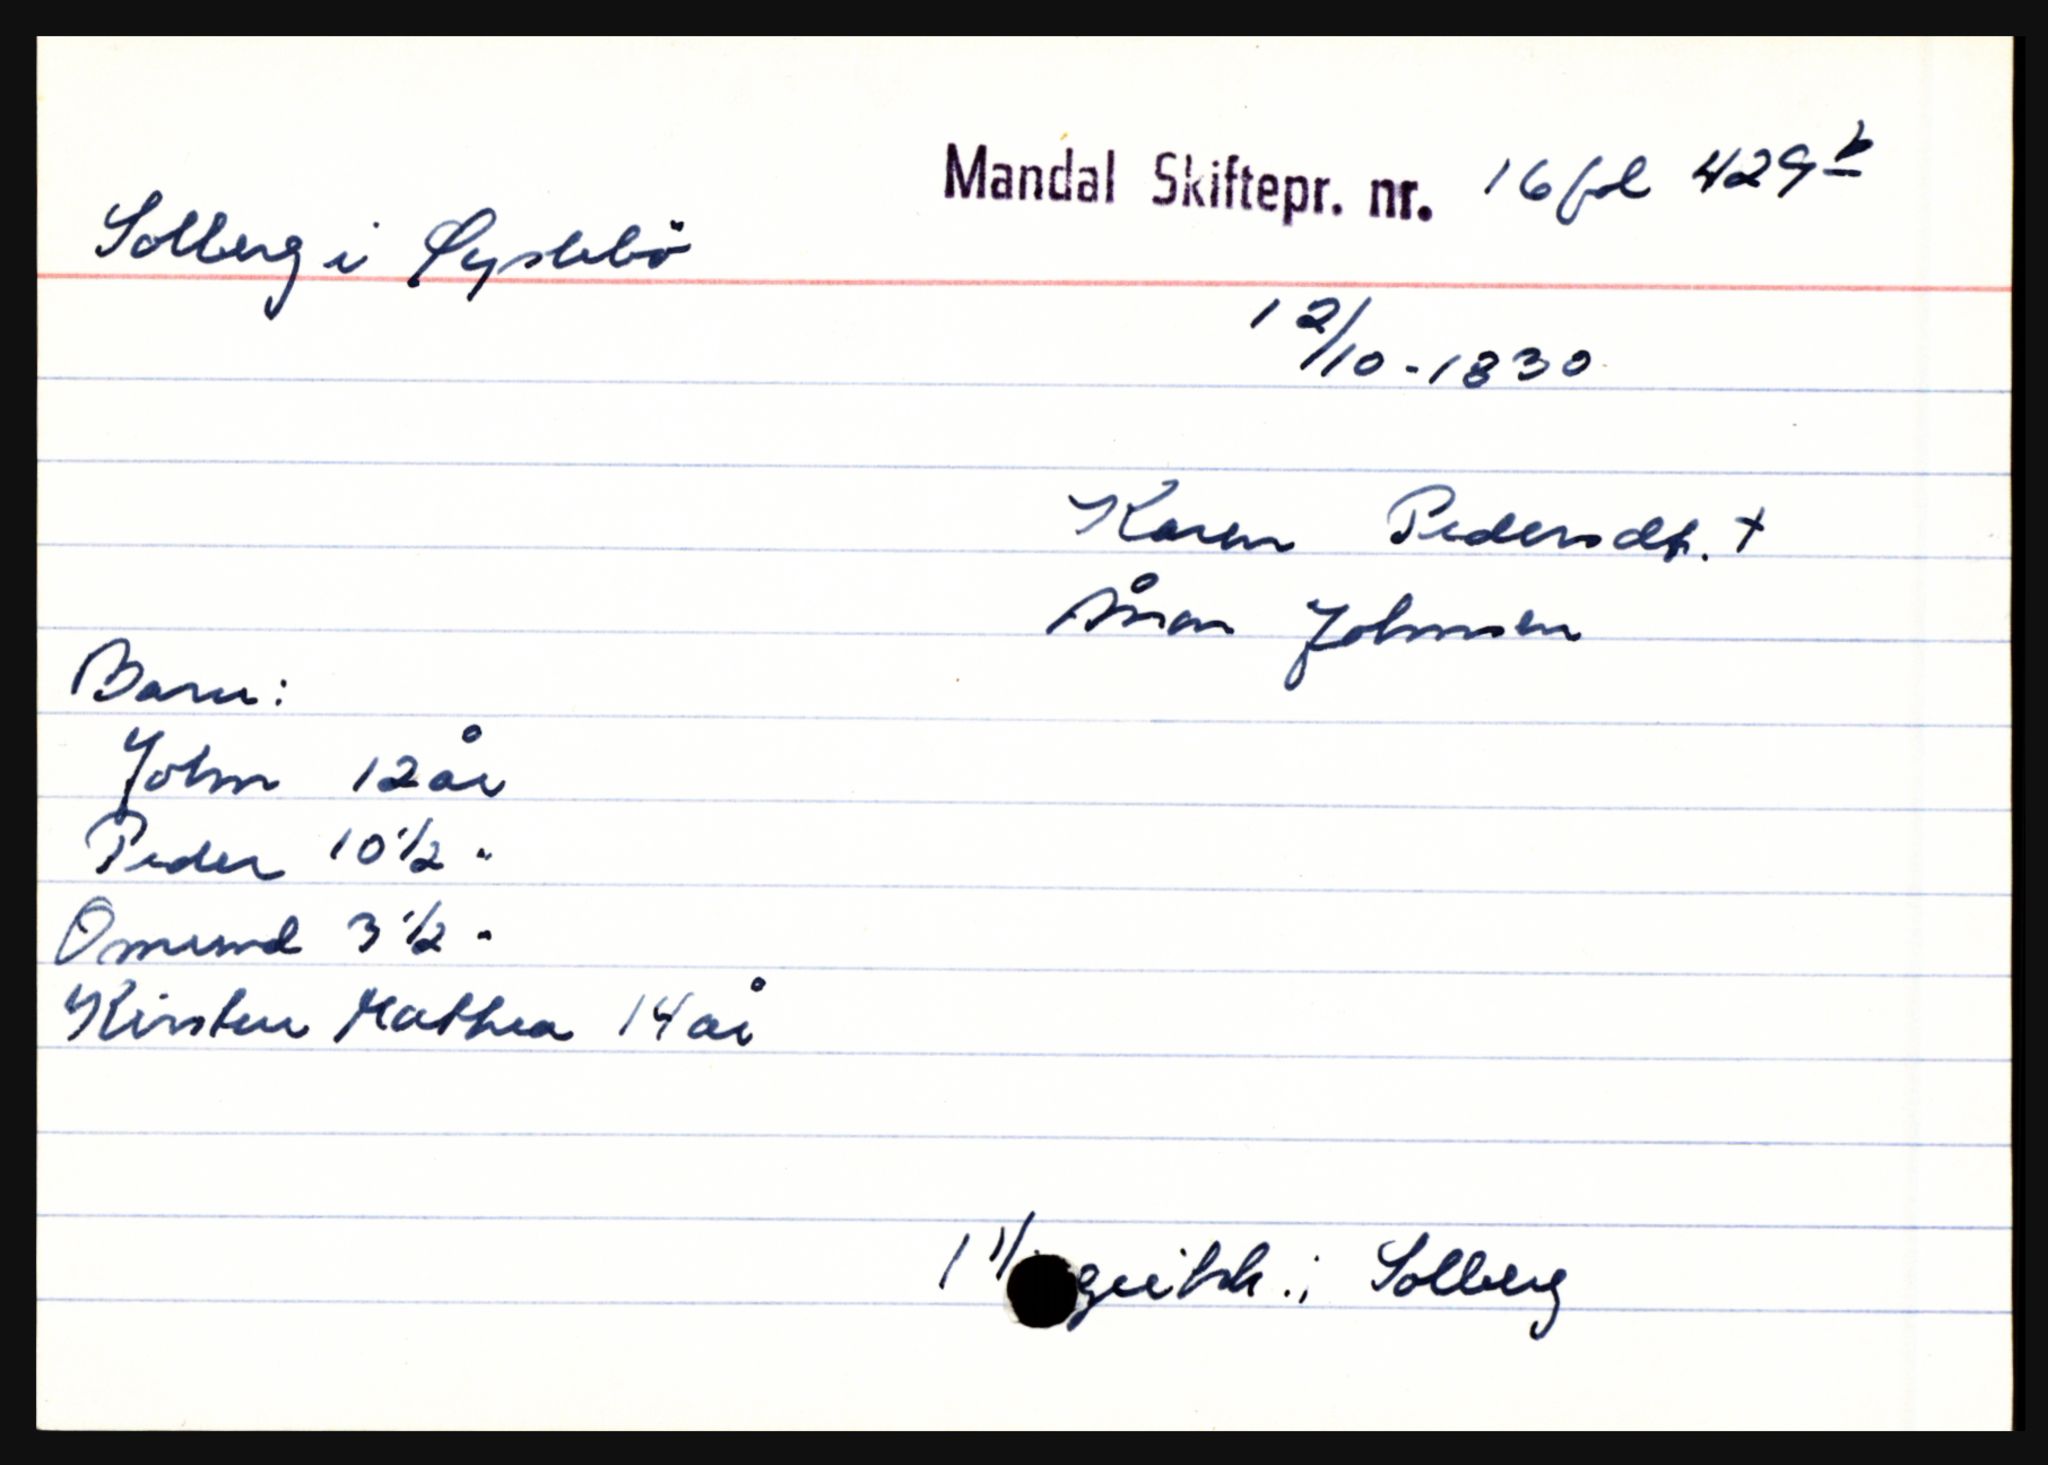 Mandal Skiftepr. nr. 16 fol 429 b
Solberg i Øyslebö
12/10-1830
Karen Pedersdt. +
Ånon Johnsen
Barn:
John 12 år
Peder 10 1/2 "
Omund 3 1/2 "
Kirsten Mathea 14 år
i Solberg